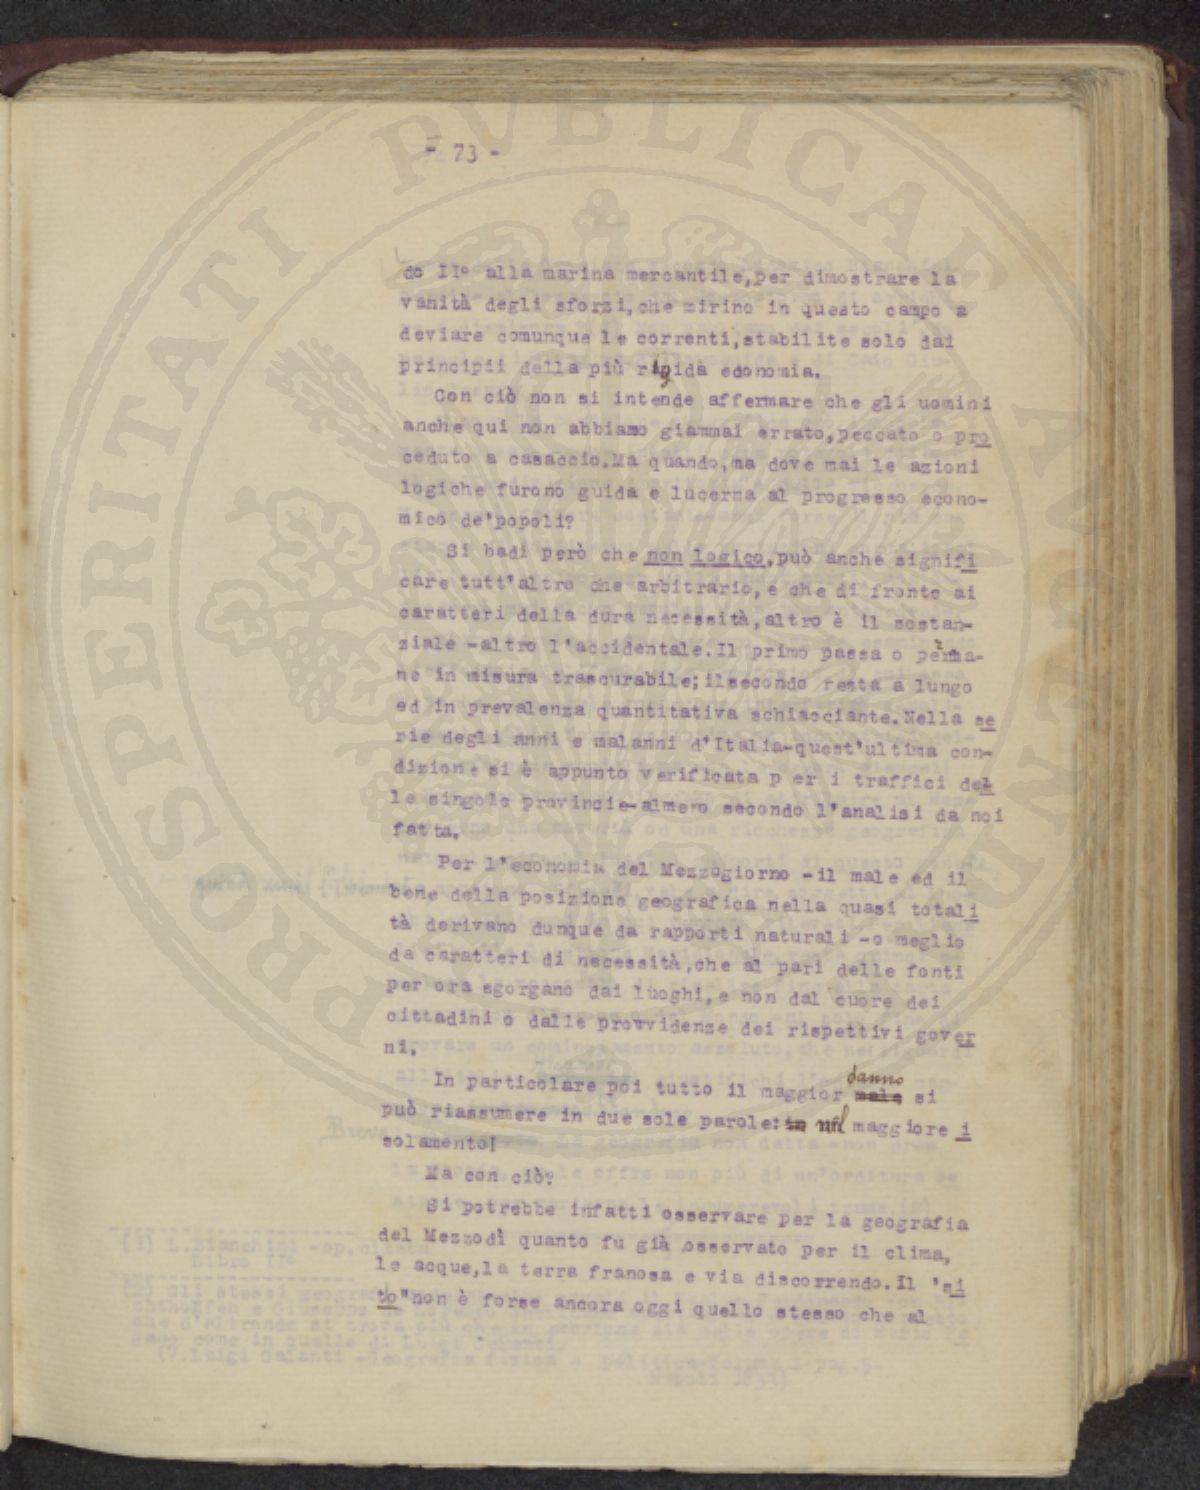 - 73 -
do II° alla marina mercantile,per dimostrare la
vanità degli sforzi,che mirino in questo campo a
deviare comunque le correnti,stabilite solo dai
principii della più rigida economia.
Con ciò non si intende affermare che gli uomini
anche qui non abbiamo giammai errato,peccato o pro
ceduto a casaccio.Ma quando,ma dove mai le azioni
logiche furono guida e lucerna al progresso econo-
mico de'popoli?
Si badi però che non logico,può anche signifi
care tutt'altro che arbitrario,e che di fronte ai
caratteri della dura necessità,altro è il sostan-
ziale -altro l'accidentale.Il primo passa o perma-
ne in misura trascurabile;ilsecondo resta a lungo
ed in prevalenza quantitativa schiacciante.Nella se
rie degli anni e malanni d'Italia-quest'ultima con-
dizione si è appunto verificata p er i traffici del
le singole provincie-almeno secondo l'analisi da noi
fatta.
Per l'economia del Mezzogiorno -il male ed il
bene della posizione geografica nella quasi totali
tà derivano dunque da rapporti naturali -o meglio
da caratteri di necessità,che al pari delle fonti
per ora sgorgano dai luoghi,e non dal cuore dei
cittadini o dalle provvidenze dei rispettivi gover
ni.
In particolare poi tutto il maggior male danno si
può riassumere in due sole parole:in nel maggiore i
solamento!
Ma con ciò?
Si potrebbe infatti osservare per la geografia
del Mezzodì quanto fu già osservato per il clima,
le acque,la terra franosa e via discorrendo.Il "si
to"non è forse ancora oggi quello stesso che al
PROSPERITATI PVBLICAE AVGENDAE